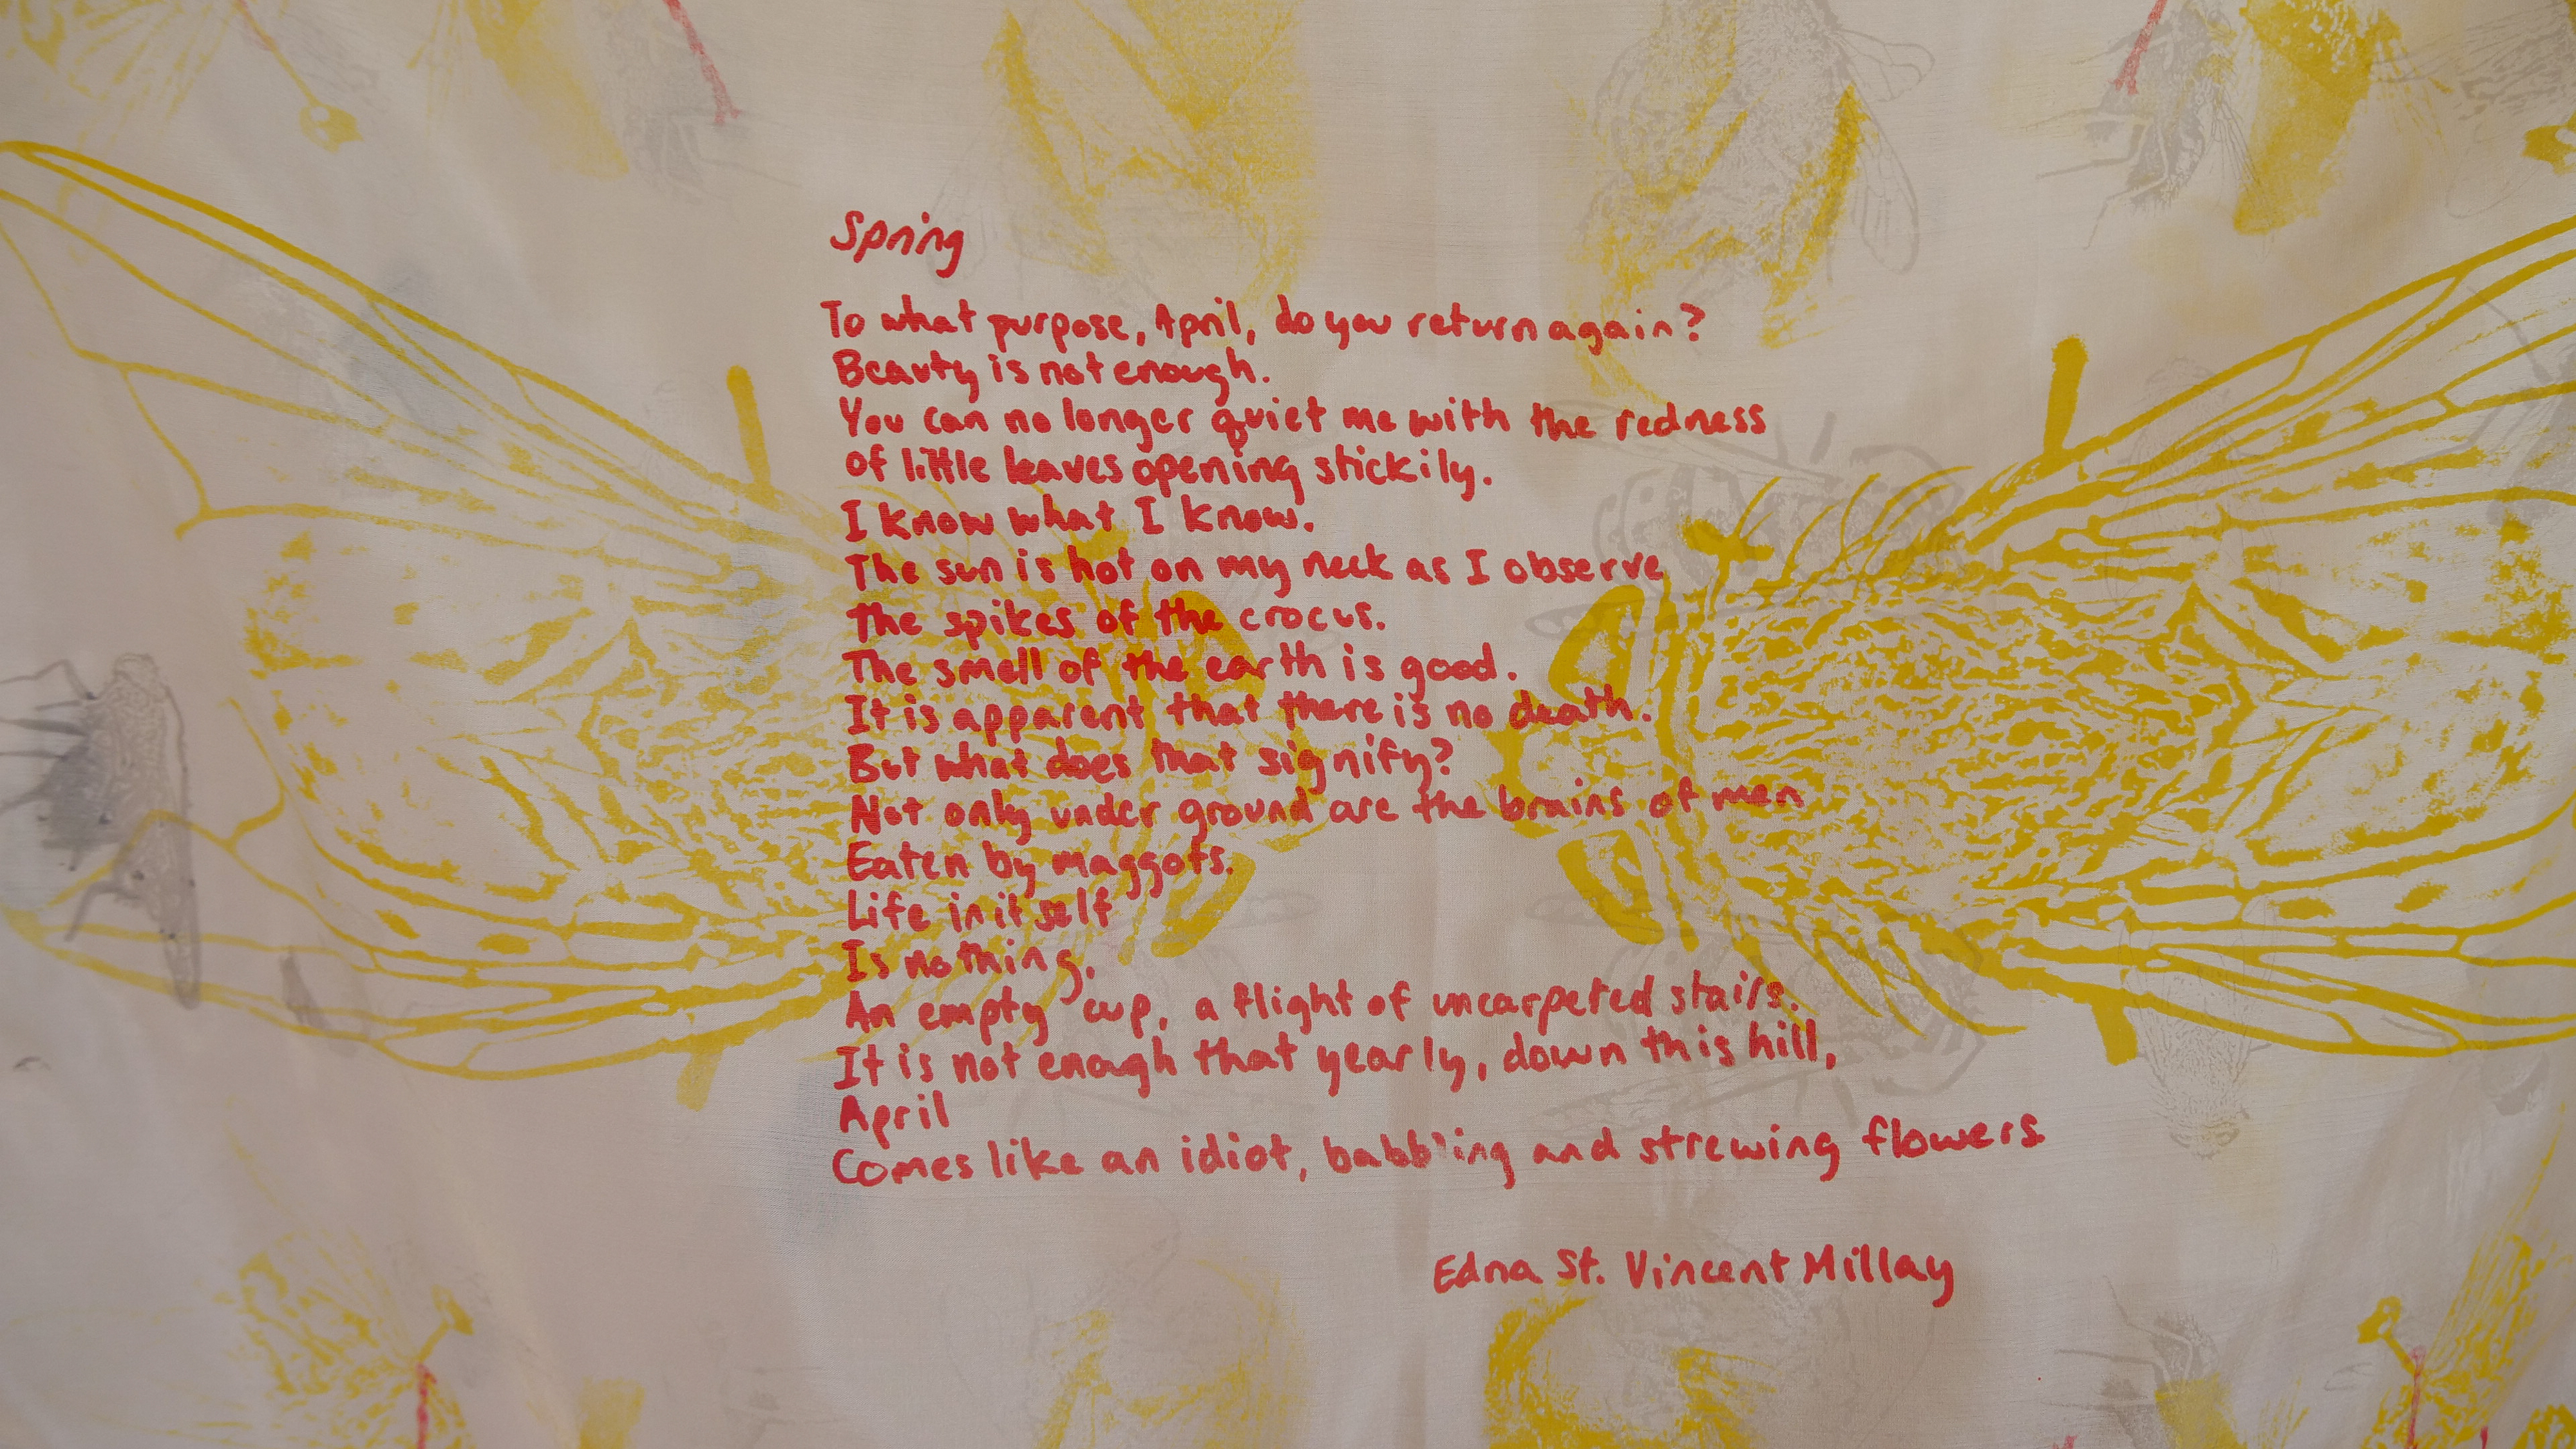 Spring
To what purpose, April, do you return again?
Beauty is not enough.
You can no longer quiet me with the redness
of little leaves opening stickily.
I know what I know.
The sun is hot on my neck as I observe
The spikes of the crocus.
The smell of the earth is good.
It is apparent that there is no death.
But what does that signify?
Not only under ground are the brains of men
Eaten by maggots.
Life in itself
Is nothing,
An empty cup, a flight of uncarpeted stairs.
It is not enough that yearly, down this hill,
April
Comes like an idiot, babbling and strewing flowers
Edna St. Vincent Millay